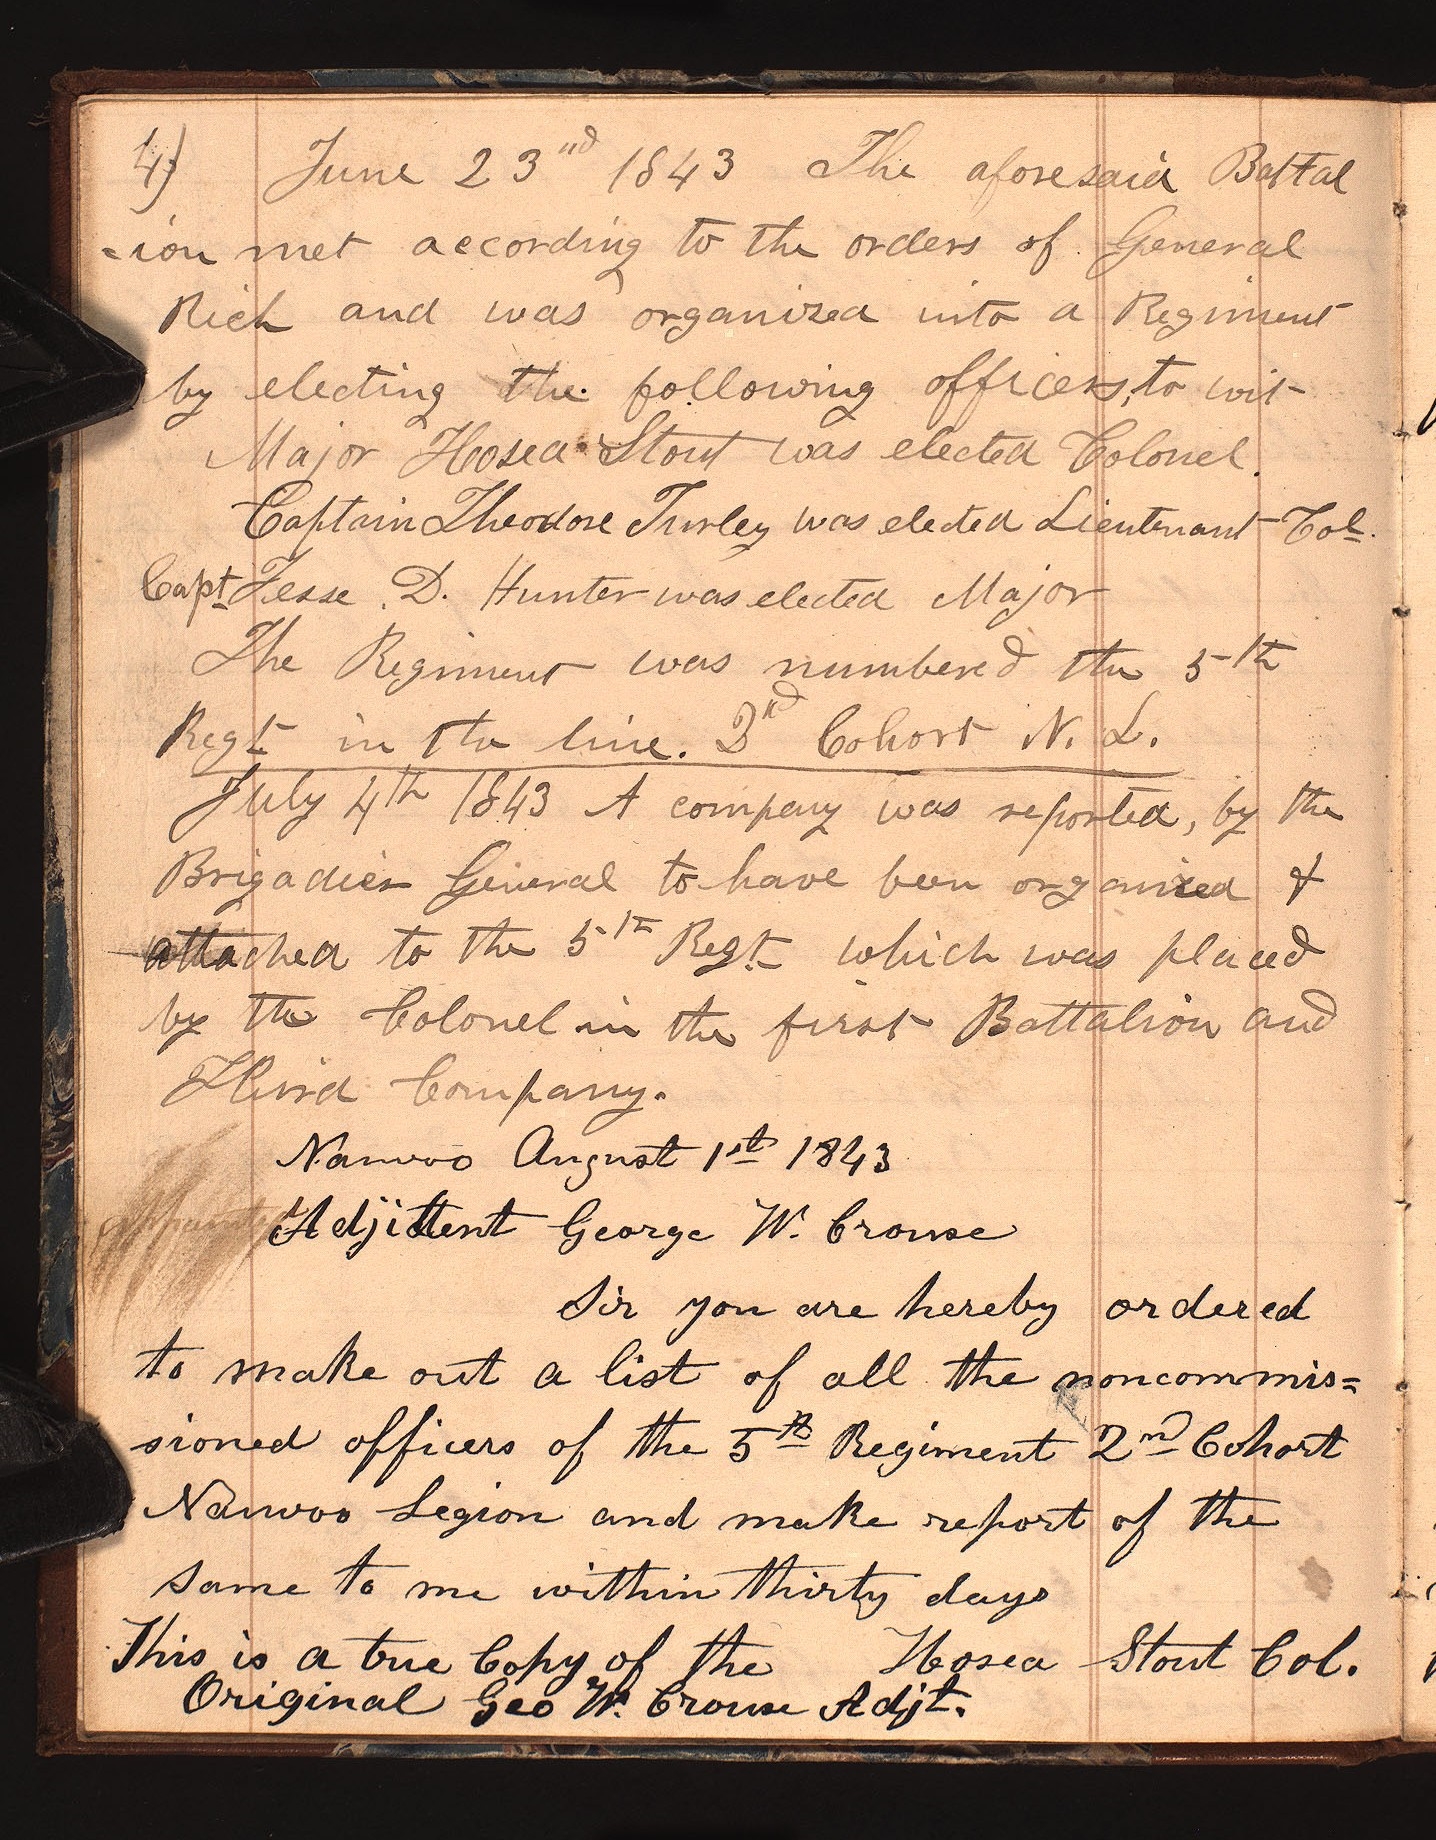 4) June 23nd 1843 The aforesaid Battal
=ion met according to the orders of General
Rich and was organized into a Regiment
by electing the following officers, to wit
Major Hosea Stout was elected Colonel.
Captain Theodore Turley was elected Lieutenant Col.
Capt Jesse D. Hunter was elected Major
The Regiment was numbered the 5th
Regt in the line. 2nd Cohort N. L.
July 4th 1843 A company was reported, by the
Brigadier General to have been organized &
attached to the 5th Regt. which was placed
by the Colonel in the first Battalion and
Third Company.
Nauvoo August 1st 1843
Adjittent George W. Crouse
Sir you are hereby ordered
to make out a list of all the noncommis=
sioned officers of the 5th Regiment 2nd Cohort
Nauvoo Legion and make report of the
same to me within thirty days
This is a true Copy of the Hosea Stout Col.
Original Geo W. Crouse Adjt.